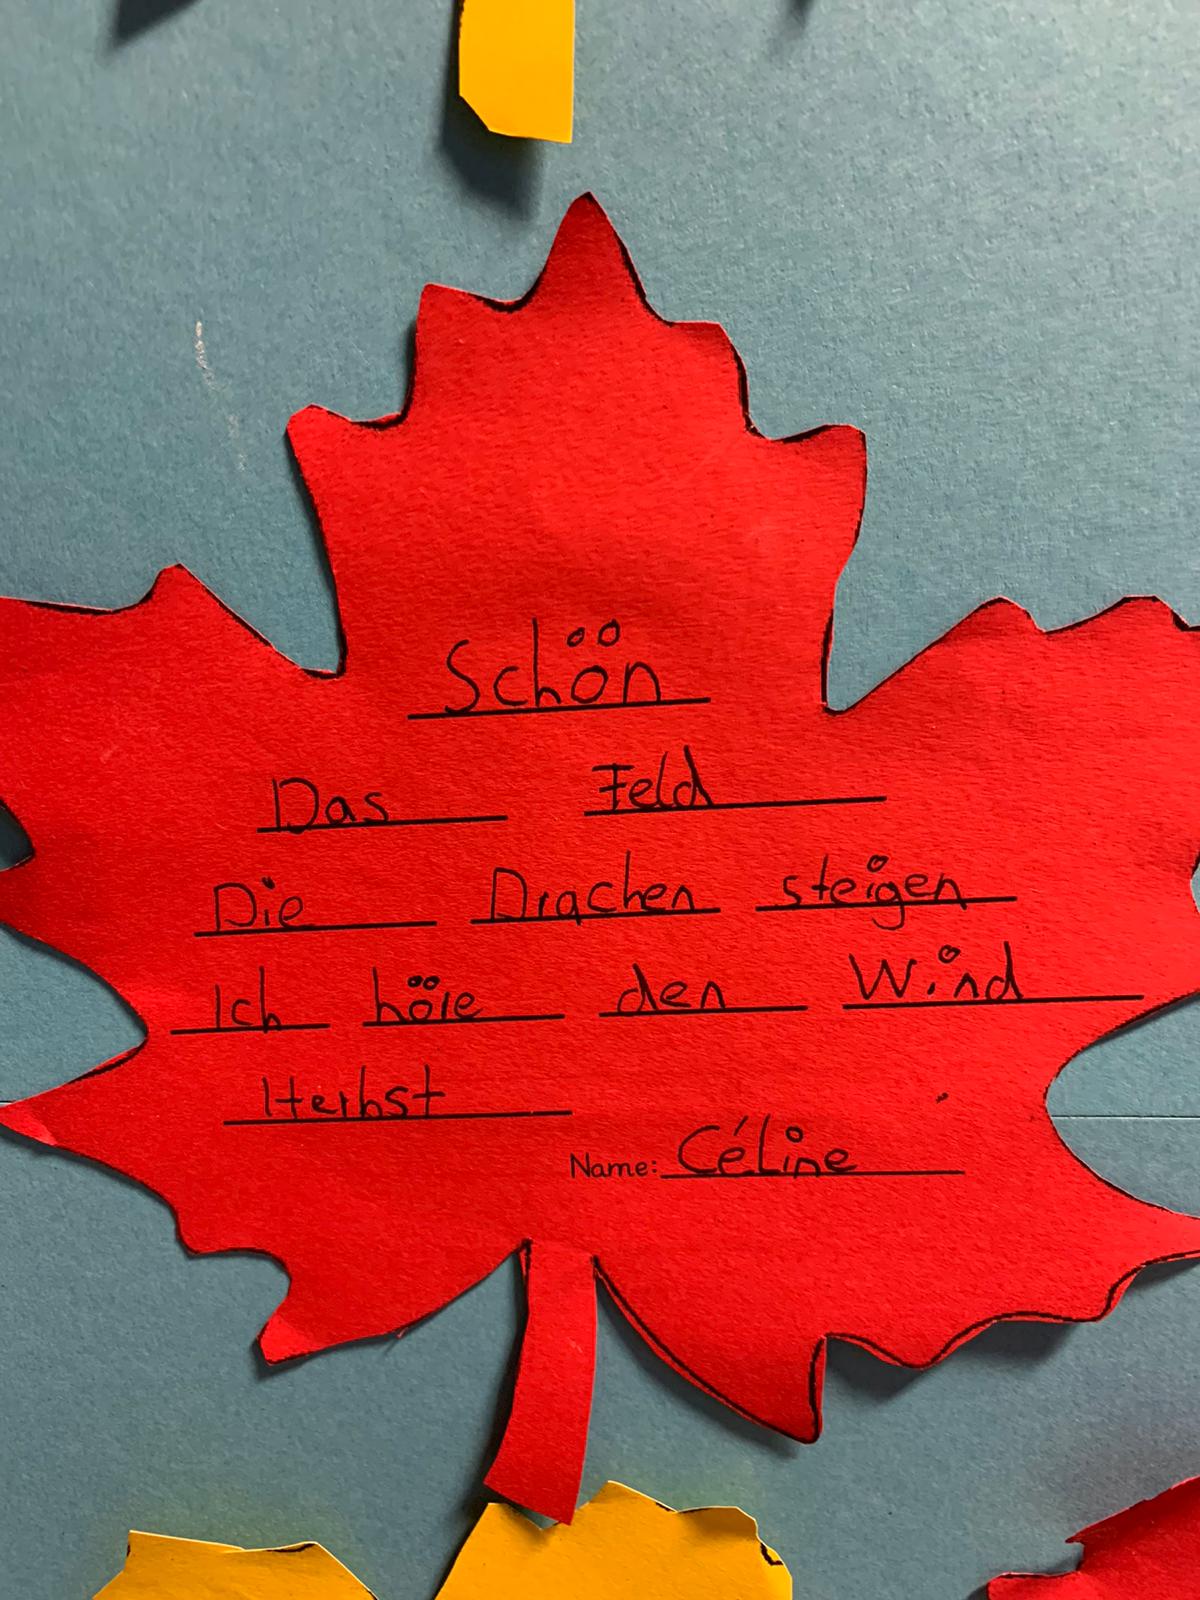 Schön
Das Feld
Die Drachen steigen
Ich höre den Wind
Herbst
Name: Céline